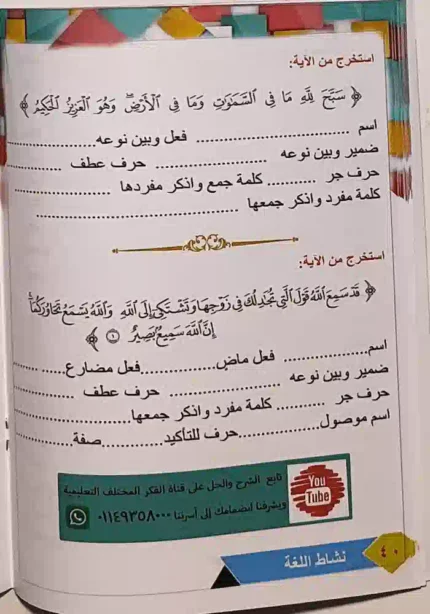 استخرج من الآية:
﴿ سَبَّحَ لِلَّهِ مَا فِي السَّمَاوَاتِ وَمَا فِي الْأَرْضِ وَهُوَ الْعَزِيزُ الْحَكِيمُ ﴾
اسم ........................ فعل وبين نوعه........................
ضمير وبين نوعه ........................ حرف عطف ................
حرف جر .......... كلمة جمع واذكر مفردها ................
كلمة مفرد واذكر جمعها ........................................
استخرج من الآية:
﴿ قَدْ سَمِعَ اللَّهُ قَوْلَ الَّتِي تُجَادِلُكَ فِي زَوْجِهَا وَتَشْتَكِي إِلَى اللَّهِ وَاللَّهُ يَسْمَعُ تَحَاوُرَكُمَا
إِنَّ اللَّهَ سَمِيعٌ بَصِيرٌ ١ ﴾
اسم.................... فعل ماض................فعل مضارع............
ضمير وبين نوعه .................... حرف عطف ................
حرف جر .......... كلمة مفرد واذكر جمعها....................
اسم موصول................حرف للتأكيد............صفة............
You
Tube
تابع الشرح والحل على قناة الفكر المختلف التعليمية
ويشرفنا انضمامك إلى أسرتنا ٠١١٤٩٣٥٨٠٠٠
نشاط اللغة
٤٠